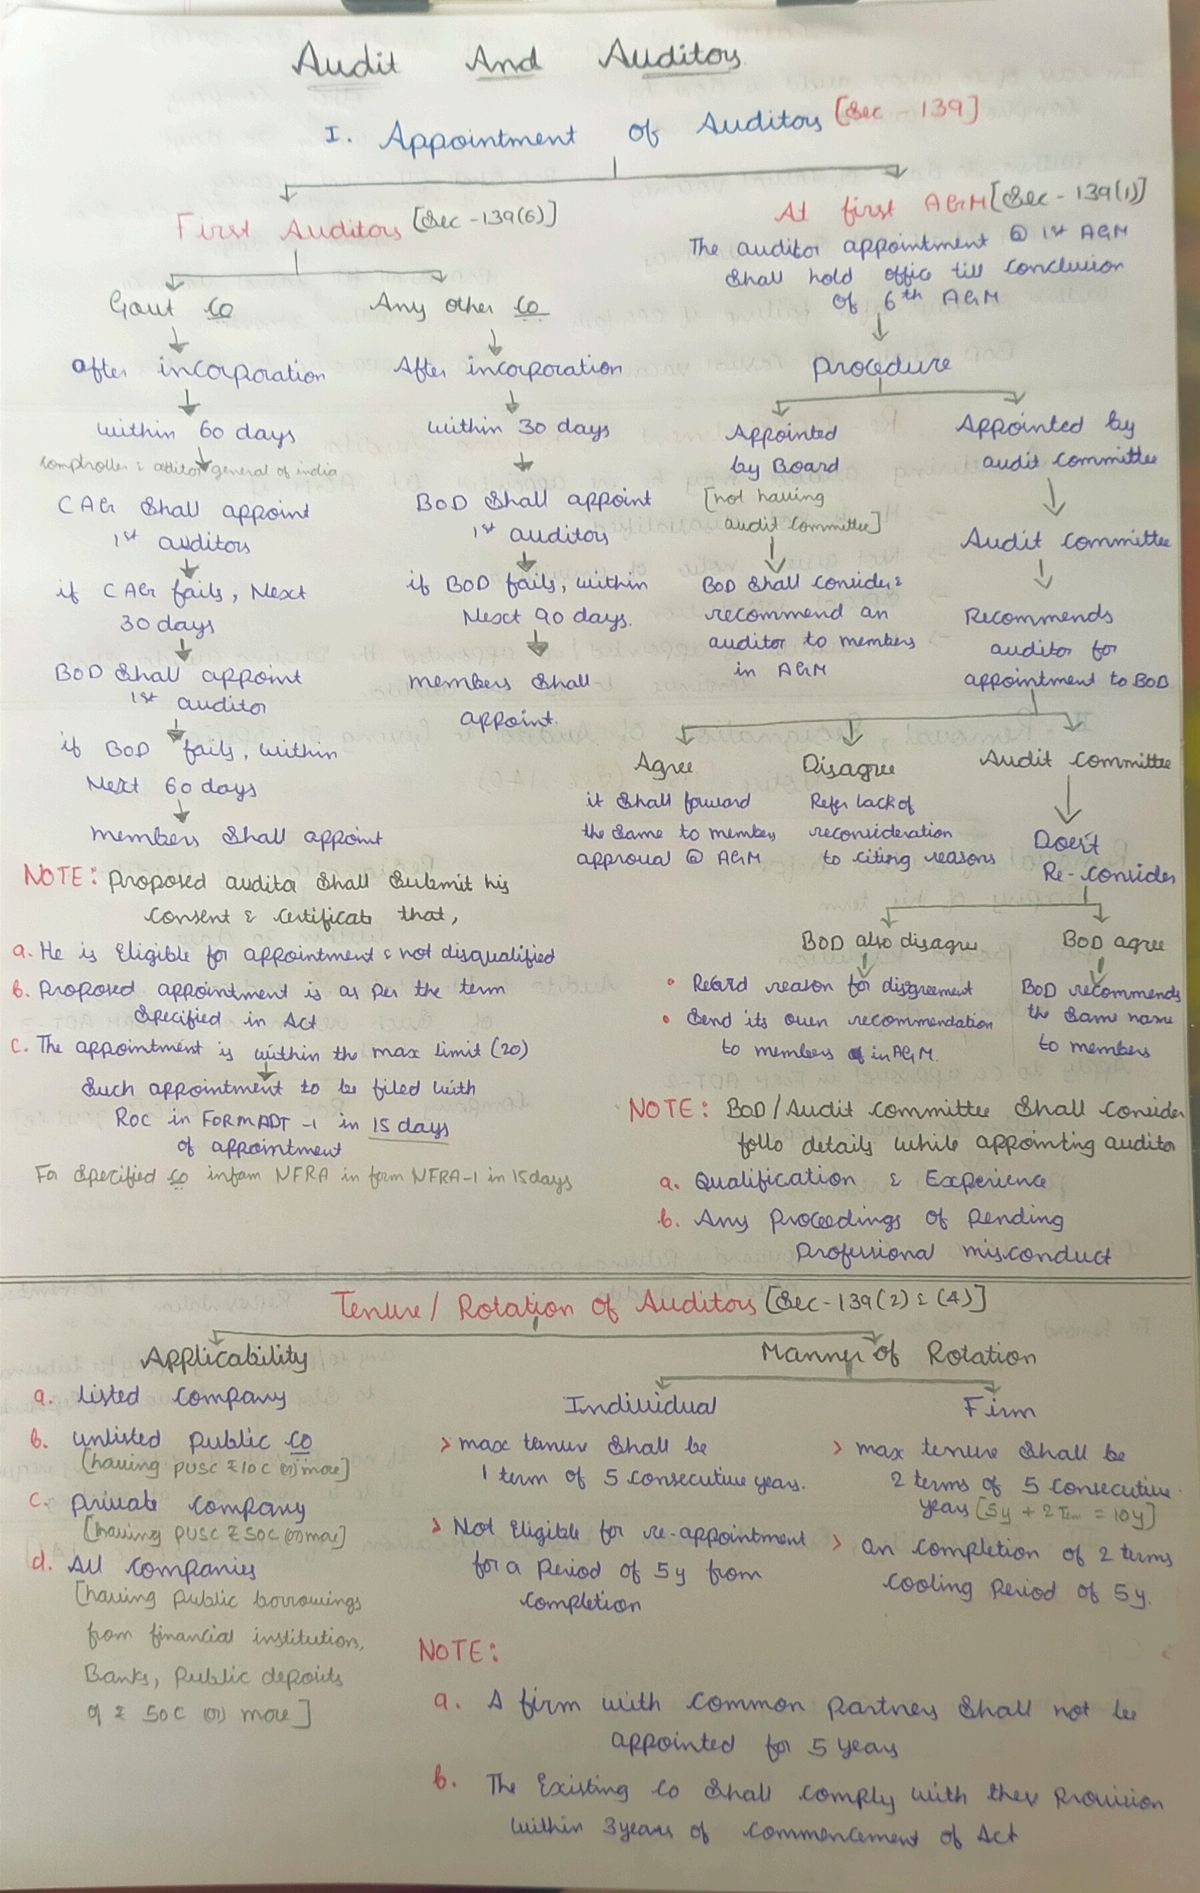 Audit And Auditors
I. Appointment of Auditors [Sec - 139]
First Auditors [Sec - 139(6)]
Govt co
after incorporation
within 60 days
comptroller & auditor general of india
CAG Shall appoint
1st auditors
if CAG fails, Next
30 days
BoD Shall appoint
1st auditor
if BoD fails, within
Next 60 days
members Shall appoint
Any other co
After incorporation
within 30 days
BoD Shall appoint
1st auditors
if BoD fails, within
Next 90 days.
members Shall
appoint.
NOTE: Proposed auditor Shall Submit his
Consent & Certificate that,
a. He is Eligible for appointment & not disqualified
b. Proposed appointment is as per the term
Specified in Act
c. The appointment is within the max limit (20)
Such appointment to be filed with
ROC in FORM ADT -1 in 15 days
of appointment
For Specified co inform NFRA in form NFRA-1 in 15 days
At first AGM [Sec - 139(1)]
The auditor appointment @ 1st AGM
Shall hold office till conclusion
of 6th AGM
Procedure
Appointed
by Board
[not having
audit committee]
BoD Shall consider &
recommend an
auditor to members
in AGM
Appointed by
audit committee
Audit committee
Recommends
auditor for
appointment to BoD
Agree
it Shall forward
the Same to members
approval @ AGM
Disagree
Refer back of
reconsideration
to citing reasons
Audit committee
Does't
Re-consider
BoD also disagree
• Record reason for disgreement
• Send its own recommendation
to members in AGM.
BoD agree
BoD recommends
the Same name
to members
NOTE: BoD/Audit committee Shall consider
follo details while appointing auditor
a. Qualification & Experience
b. Any Proceedings of Pending
Professional misconduct
Tenure/ Rotation of Auditors [Sec - 139(2) & (4)]
Applicability
a. listed company
b. unlisted public co
[having PUSC ₹ 10C (or) more]
c. private company
[having PUSC ₹ 50C (or) more]
d. All companies
[having Public borrowings
from financial institution,
Banks, Public deposits
of ₹ 50C (or) more]
Manner of Rotation
Individual
> max tenure Shall be
1 term of 5 consecutive years.
> Not Eligible for re-appointment
for a Period of 5y from
completion
Firm
> max tenure Shall be
2 terms of 5 consecutive
years [5y + 2 Term = 10y]
> on completion of 2 terms
cooling Period of 5y.
NOTE:
a. A firm with common Partners Shall not be
appointed for 5 years
b. The Existing Co Shall comply with ther Provision
within 3 years of commencement of Act